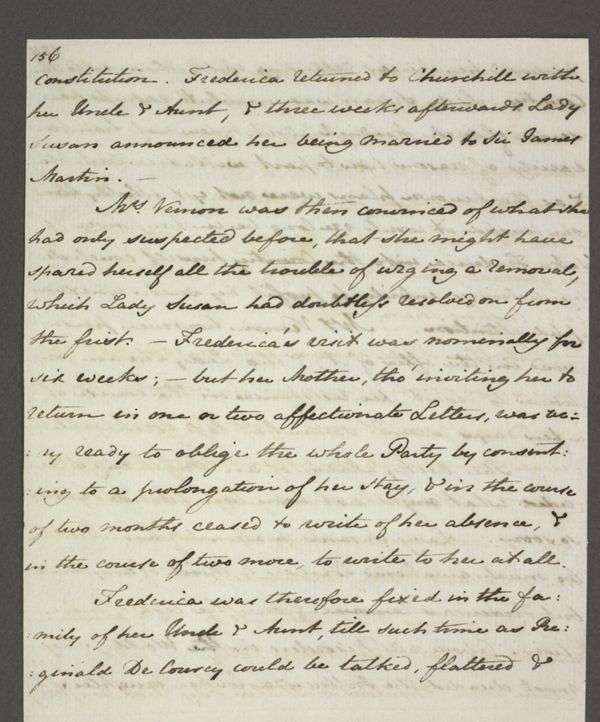 156
constitution. Frederica returned to Churchill with
her Uncle & Aunt, & three weeks afterwards Lady
Susan announced her being married to Sir James
Martin. —
Mrs. Vernon was then convinced of what she
had only suspected before, that she might have
spared herself all the trouble of urging a removal,
which Lady Susan had doubtless resolved on from
the first. — Frederica's visit was nominally for
six weeks; — but her Mother, tho' inviting her to
return in one or two affectionate Letters, was ve=
:ry ready to oblige the whole Party by consent:
:ing to a prolongation of her stay, & in the course
of two months ceased to write of her absence, &
in the course of two more, to write to her at all.
Frederica was therefore fixed in the fa:
:mily of her Uncle & Aunt, till such time as Re:
:ginald De Courcy could be talked, flattered &